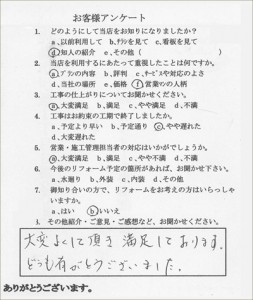 お客様アンケート
1. どのようにして当店をお知りになりましたか?
a.以前利用して b.チラシを見て c.看板を見て
d.知人の紹介 e.その他 ( )
2. 当店を利用するにあたって重視したことは何ですか。
a.プランの内容 b.評判 c.サービスや対応のよさ
d.当社の場所 e.価格 f.営業マンの人柄
3. 工事の仕上がりについてお聞かせください。
a.大変満足 b.満足 c.やや満足 d.不満
4. 工事はお約束の工期で終了しましたか。
a.予定より早い b.予定通り c.やや遅れた
d.大変遅れた
5. 営業・施工管理担当者の対応はいかがでしょうか。
a.大変満足 b.満足 c.やや不満 d.不満
6. 今後のリフォーム予定の箇所があれば、お聞かせ下さい。
a.水廻り b.外装 c.内装 d.その他
7. 御知り合いの方で、リフォームをお考えの方はいらっしゃ
いますか。
a.はい b.いいえ
8. その他紹介・ご意見・ご感想など、お聞かせください。
大変よくして頂き満足しております。
どうも有がとうございました。
ありがとうございます。